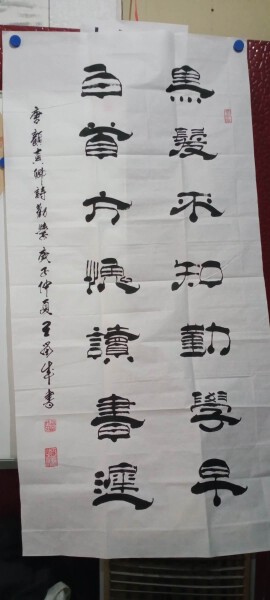 黑髮不知勤學早
白首方悔讀書遲
唐顏真卿詩勸學庚子仲夏王書